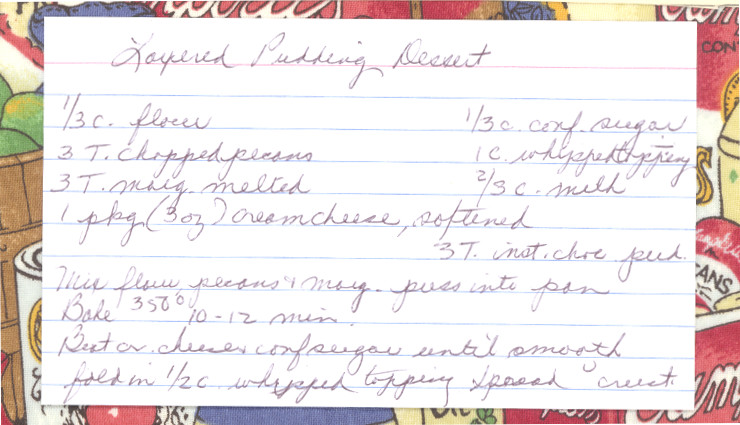 Layered Pudding Dessert
1/3 c. flour 1/3 c. conf. sugar
3 T. chopped pecans 1 c. whipped topping
3 T. marg. melted 2/3 c. milk
1 pkg (3 oz) cream cheese, softened
3 T. inst. choc pud.
Mix flour pecans & marg. press into pan
Bake 350° 10-12 min.
Beat cr. cheese & conf sugar until smooth
fold in 1/2 c. whipped topping spread crust
CON
ANS